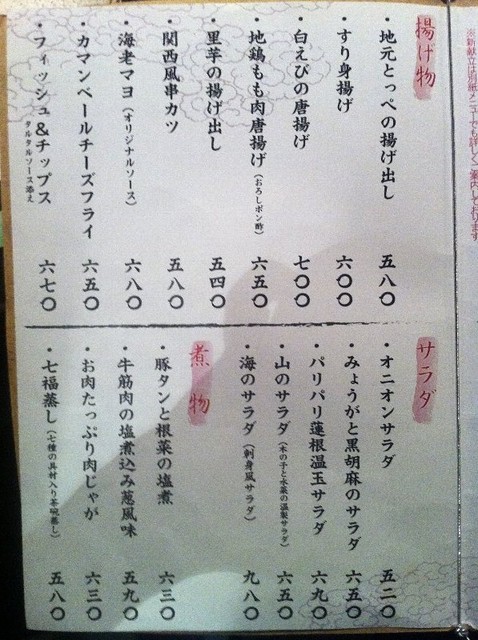 ※新献立は別紙メニューでも詳しくご案内しております
揚げ物
・地元とっぺの揚げ出し 五八〇
・すり身揚げ 六〇〇
・白えびの唐揚げ 七〇〇
・地鶏もも肉唐揚げ(おろしポン酢) 六五〇
・里芋の揚げ出し 五四〇
・関西風串カツ 五八〇
・海老マヨ(オリジナルソース) 六八〇
・カマンベールチーズフライ 六五〇
・フィッシュ&チップス 六七〇
タルタルソース添え
サラダ
・オニオンサラダ 五二〇
・みょうがと黒胡麻のサラダ 六五〇
・パリパリ蓮根温玉サラダ 六九〇
・山のサラダ(木の子と水菜の温製サラダ) 六五〇
・海のサラダ(刺身風サラダ) 九八〇
煮物
・豚タンと根菜の塩煮 六三〇
・牛筋肉の塩煮込み葱風味 五九〇
・お肉たっぷり肉じゃが 六三〇
・七福蒸し(七種の具材入り茶碗蒸し) 五八〇